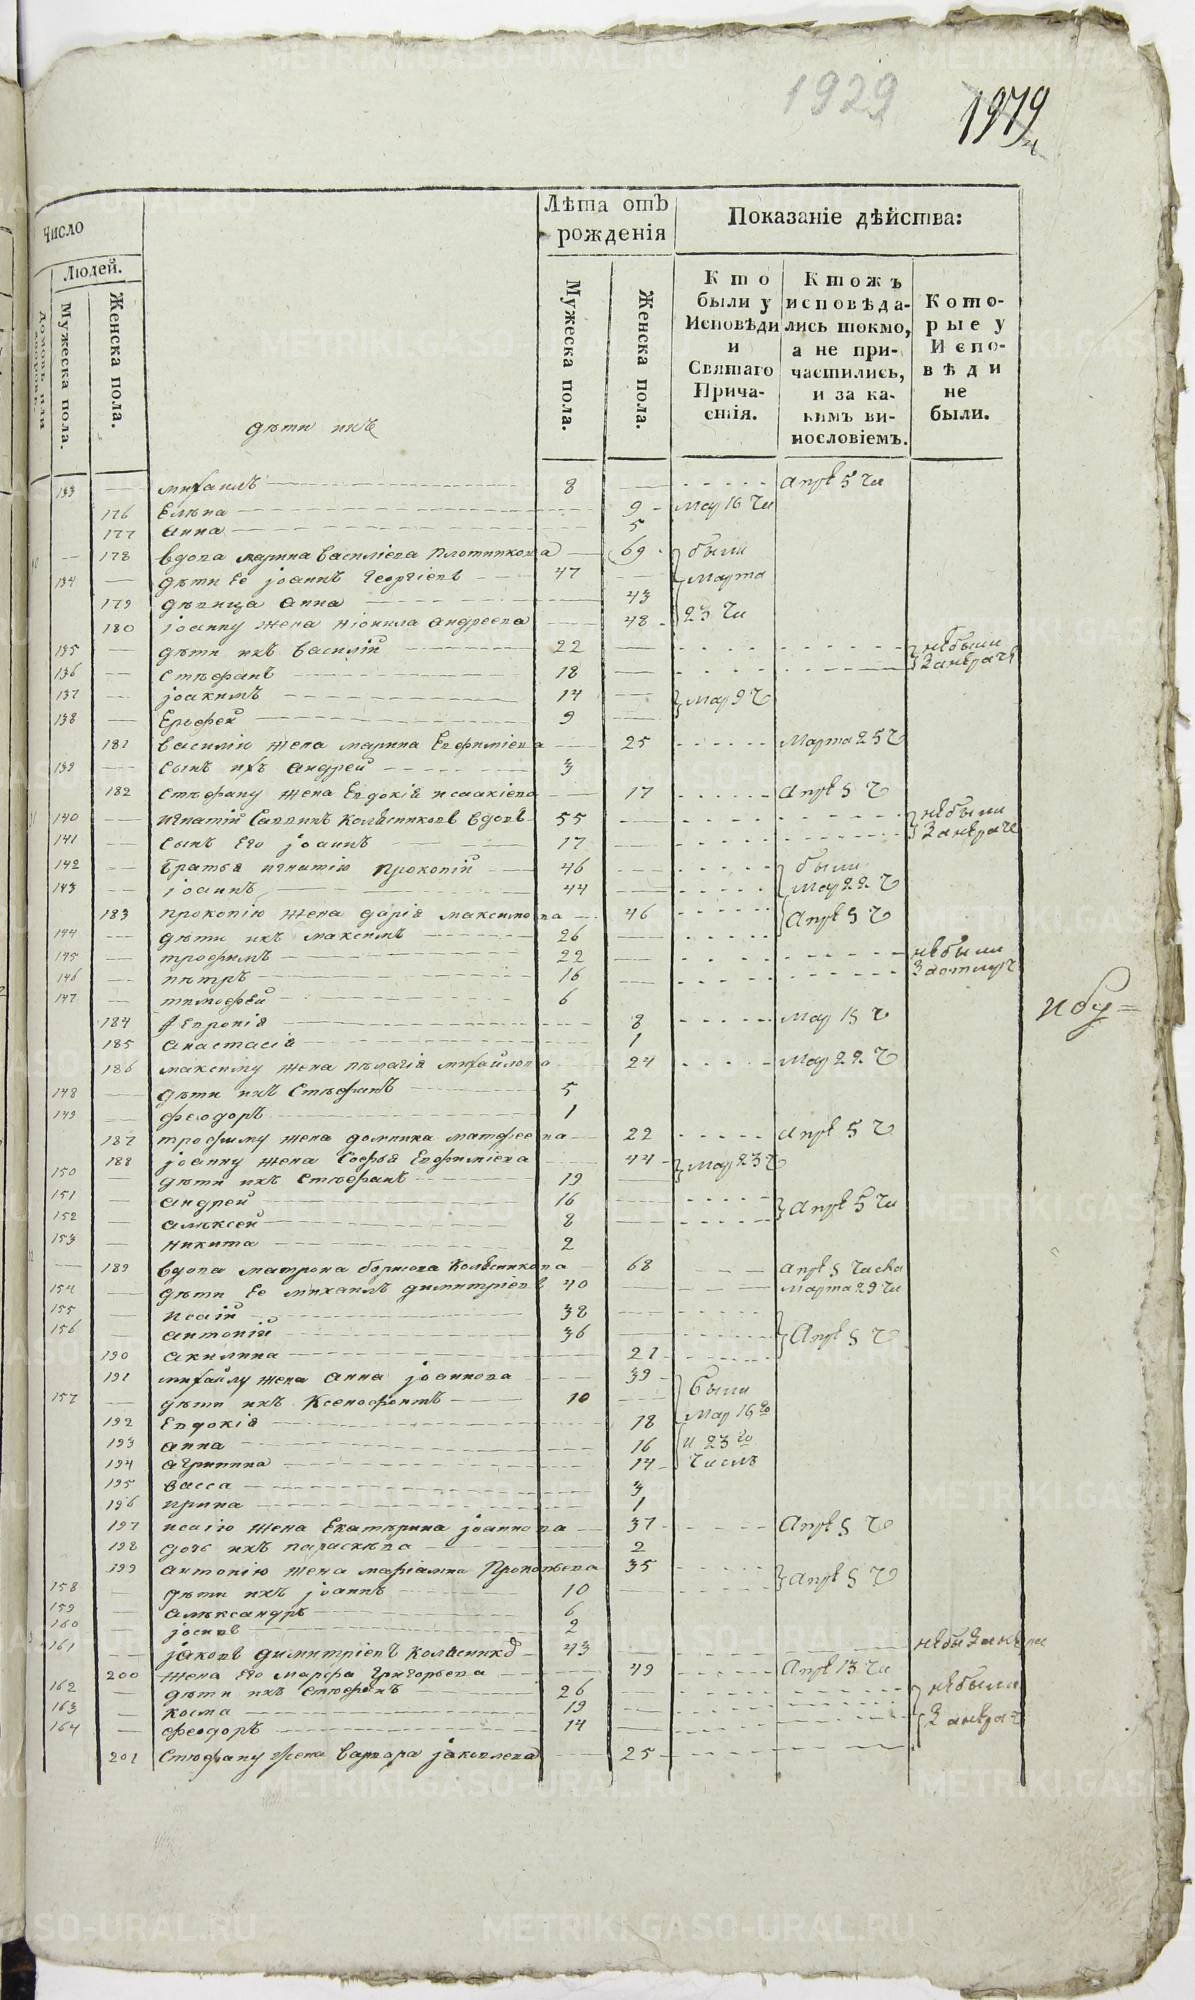 1929
1979
Число
Людей.
Домовъ или дворовъ.
Мужеска пола.
Женска пола.
Лѣта отъ рожденія
Мужеска пола.
Женска пола.
Показаніе дѣйства:
Кто были у Исповѣди и Святаго Причастія.
Ктожъ исповѣдались токмо, а не причастились, и за какимъ винословіемъ.
Которые у Исповѣди не были.
дѣти ихъ
133 михаилъ 8 Апр 5 чи
176 Елѣна 9 Мар 16 чи
177 анна 5
178 вдова марина василіева плотникова 69 были
134 дѣти ее іоаннъ Георгіевъ 47 Марта
179 дѣвица анна 43
180 іоанну жена Ніонила андреева 48 23 чи
135 дѣти ихъ василій 22 не были
136 Стефанъ 18
137 іоакимъ 14 Мар 9 ч
138 Ерофей 9
181 василію жена марина Евфиміева 25 Марта 25 ч
139 сынъ ихъ андрей 3
182 Стефану жена Евдокія исаакіева 17 Апр 5 ч
140 игнатій Саввинъ Колѣсниковъ вдовъ 55 не были
141 сынъ его іоаннъ 17
142 братья игнатію Прокопій 46 были
143 іоаннъ 44 Мар 22 ч
183 прокопію жена дарія максимова 46 Апр 5 ч
144 дѣти ихъ максимъ 26
145 трофимъ 22 не были
146 пѣтръ 16
147 тимофей 6
184 Февронія 8 Мар 15 ч
185 анастасія 1
186 максиму жена пелагія михайлова 24 Мар 22 ч
148 дѣти ихъ Стефанъ 5
149 феодоръ 1
187 трофиму жена домника матфеева 22 Апр 5 ч
188 іоанну жена Софья Евфиміева 44 Мар 23 ч
150 дѣти ихъ Стефанъ 19
151 андрей 16 Апр 5 чи
152 алѣксей 8
153 никита 2
189 вдова матрона борисова Колѣсникова 68 апр 5 числа
154 дѣти ее михаилъ димитріевъ 40 Марта 29 чи
155 исаій 38
156 антоній 36 Апр 5 ч
190 акилина 21
191 михайлу жена анна іоаннова 39
157 дѣти ихъ Ксенофонтъ 10 были
192 Евдокія 18 Мар 16го
193 анна 16 и 23го
194 агрипина 14 числъ
195 васса 3
196 ирина 1
197 исаію жена Екатѣрина іоаннова 37 Апр 5 ч
198 дочь ихъ параскѣва 2
199 антонію жена маріамна Прокопьева 35 Апр 5 ч
158 дѣти ихъ іоаннъ 10
159 алѣксандръ 6
160 іосифъ 2
161 іаковъ димитріевъ Колѣсник 43
200 жена его марфа григорьева 49 Апр 13 чи
162 дѣти ихъ Стефанъ 26 не были
163 косма 19
164 феодоръ 14
201 Стефану жена варвара іаковлева 25